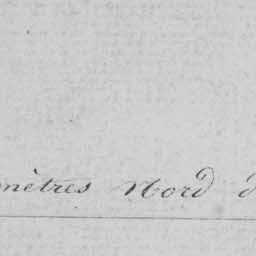 mètres Nord d